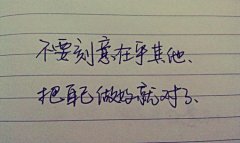 不要刻意在乎其他、
把自己做好就对了、